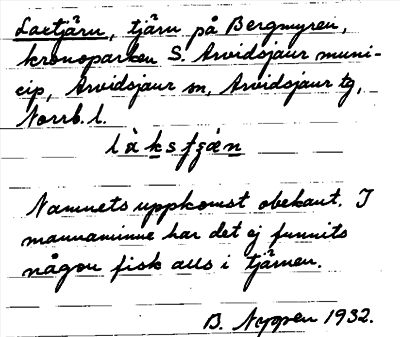 Laxtjärn, tjärn på Bergmyren,
kronoparken S. Arvidsjaur muni-
cip, Arvidsjaur sn, Arvidsjaur tg,
Norrb. l.
Namnets uppkomst obekant. I
mannaminne har det ej funnits
någon fisk alls i tjärnen.
B. Nygren 1932.